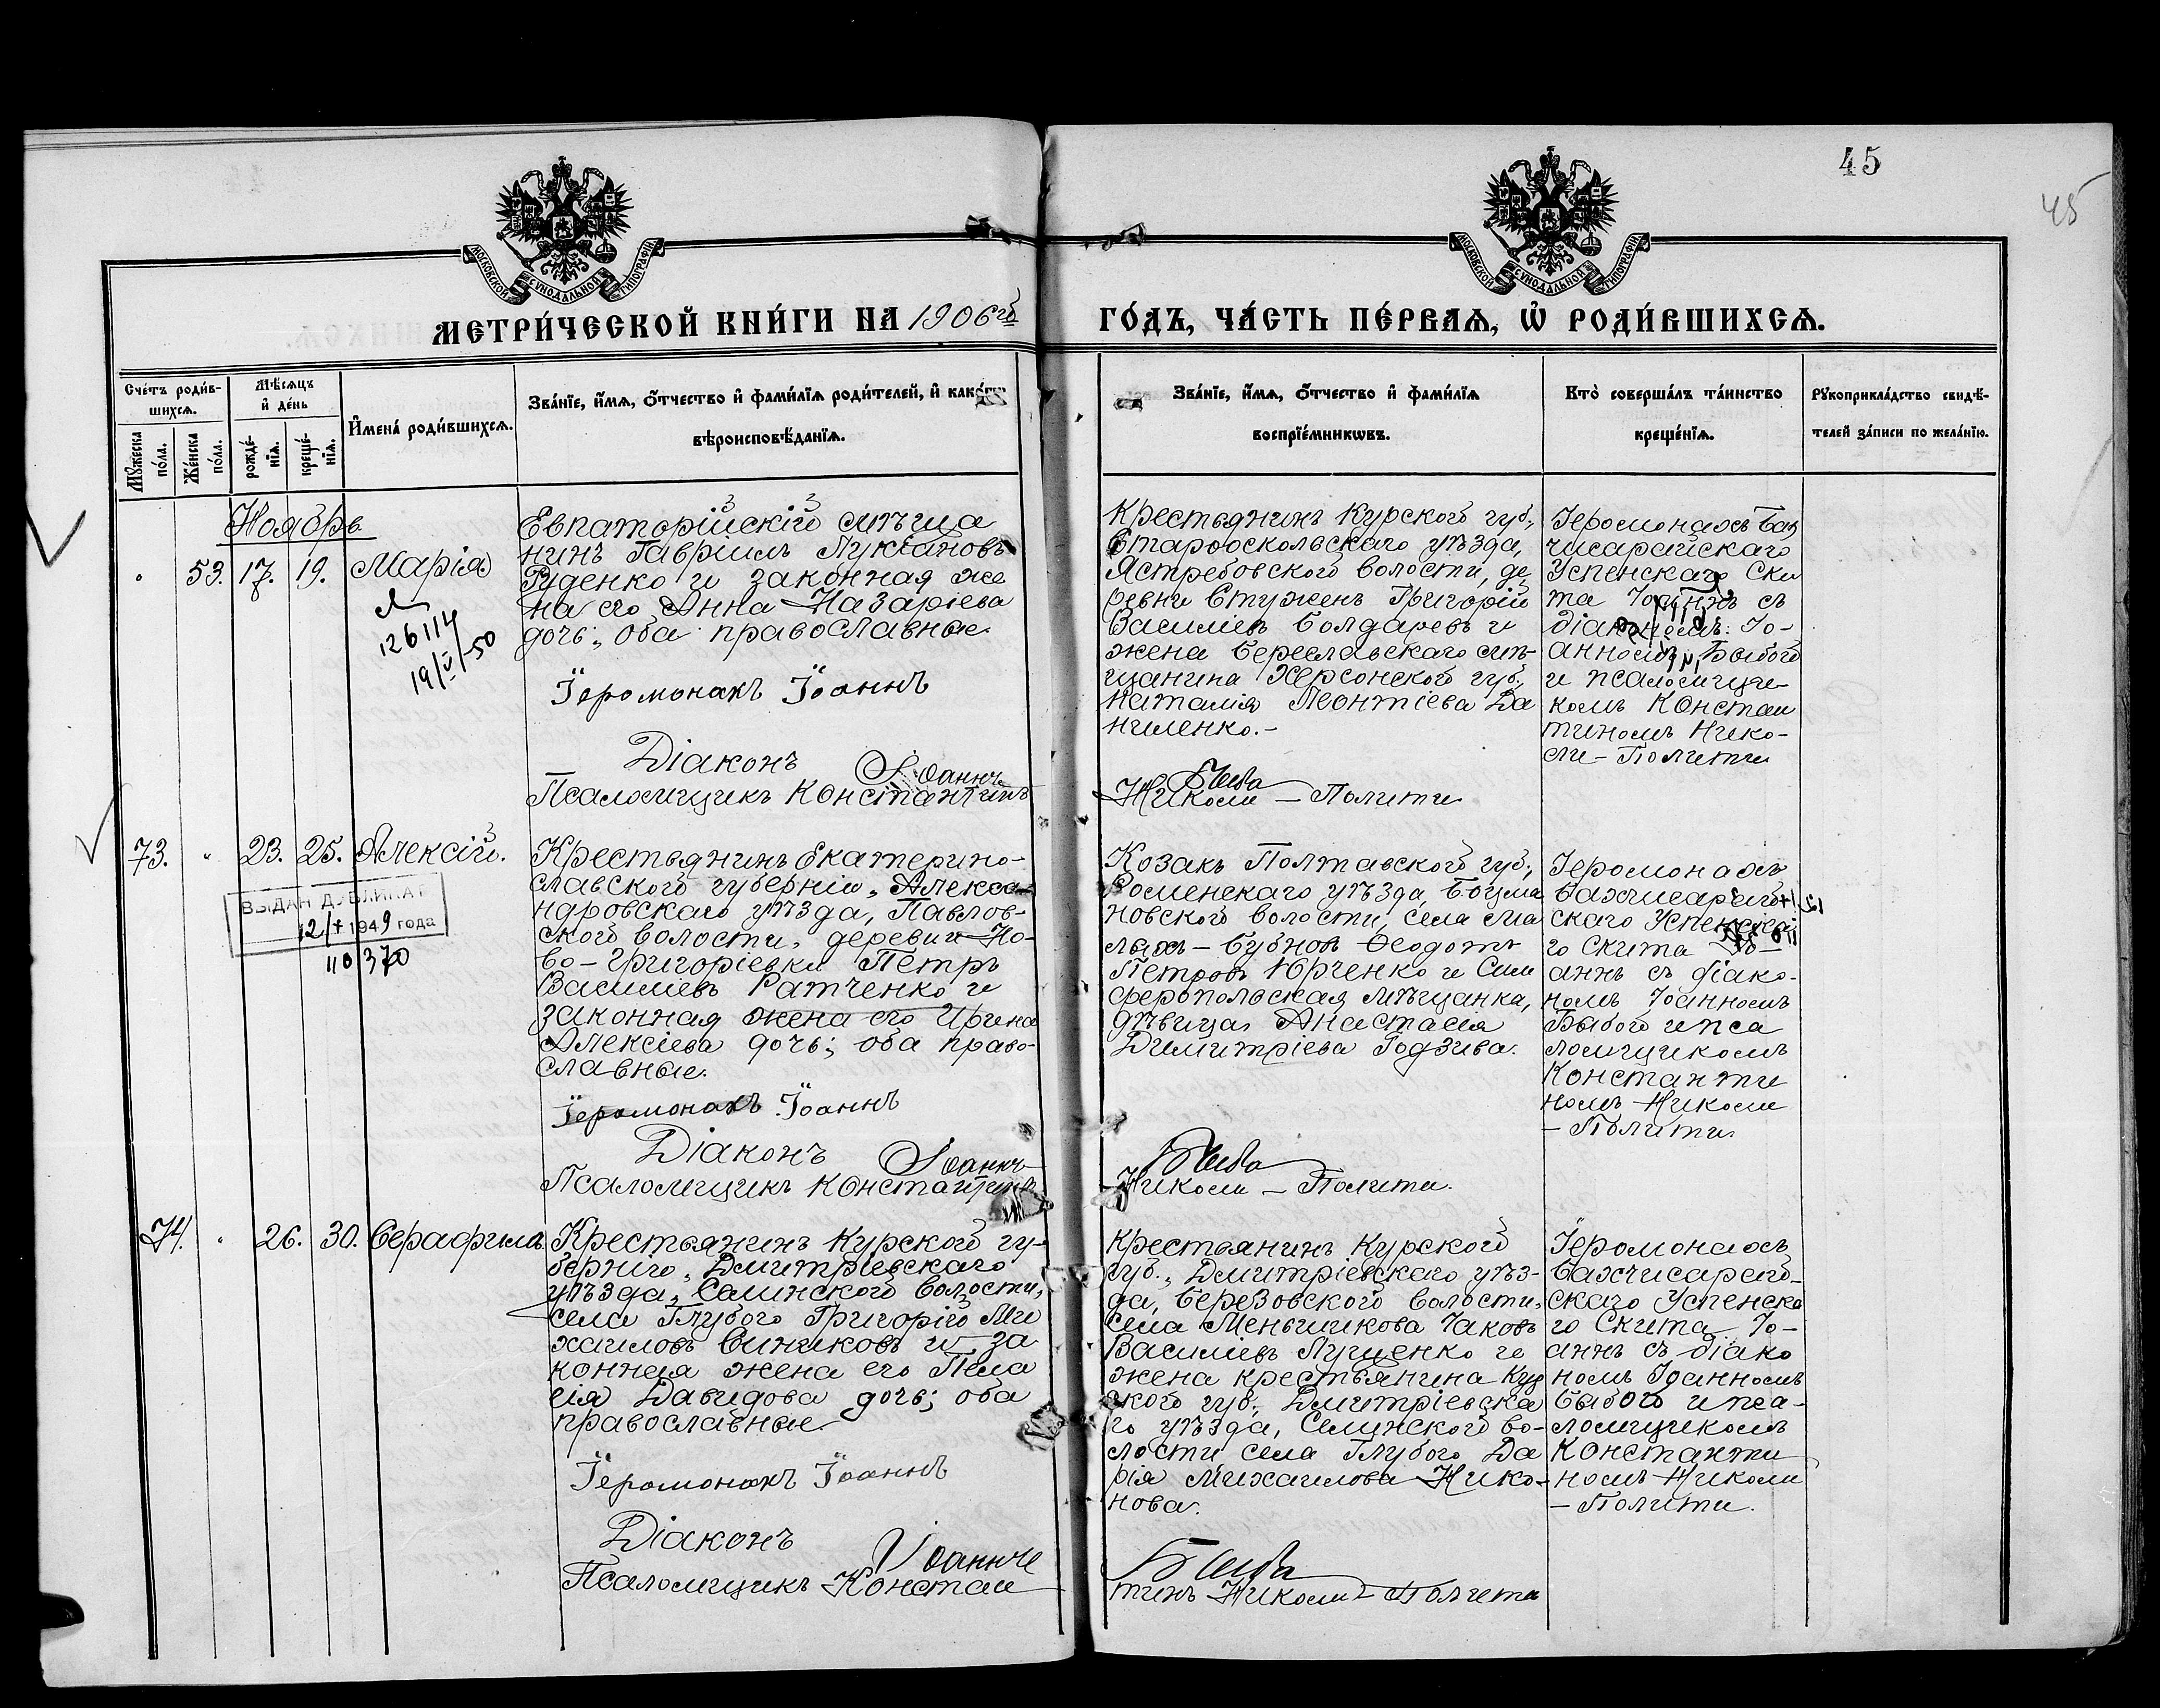 45
45
МОСКОВСКОЙ СУНОДАЛЬНОЙ ТИПОГРАФІИ
МОСКОВСКОЙ СУНОДАЛЬНОЙ ТИПОГРАФІИ
МЕТРИ́ЧЕСКОЙ КНИ́ГИ НА 1906го
ГО́ДЪ, ЧА́СТЬ ПЕ́РВАѦ, Ѡ҆ РОДИ́ВШИХСѦ.
Сче́тъ роди́в-
шихсѧ.
Мꙋ́жеска по́ла.
Же́нска по́ла.
Мѣ́сѧцъ
и҆ де́нь
рожде́-
нїѧ.
креще́-
нїѧ.
И҆мена̀ роди́вшихсѧ.
Зва́нїе, и҆́мѧ, ѻ҆́тчество и҆ фами́лїѧ роди́телей, и҆ како́гѡ
вѣроисповѣ́данїѧ.
Зва́нїе, и҆́мѧ, ѻ҆́тчество и҆ фами́лїѧ
воспрїе́мникѡвъ.
Кто̀ соверша́лъ та́инство
креще́нїѧ.
Рꙋкоприкла́дство свидѣ́-
телей за́писи по жела́нїю.
Ноябрь
53. 17. 19. Марія
126114
19/V-50
Евпаторійскій мѣща
нинъ Гавріилъ Лукіановъ
Руденко и законная же
на его Анна Назаріева
дочь; оба православные.
Іеромонахъ Іоаннъ
Діаконъ Іоаннъ
Псаломщикъ Константинъ
Крестьянинъ Курской губ.,
Старооскольскаго уѣзда,
Ястребовской волости, де
ревни Стужень Григорій
Василіевъ Болдаревъ и
жена Береславскаго мѣ-
щанина Херсонской губ.,
Наталія Леонтіева Да
ниленко.-
Николи - Полити
Іеромонахъ Бах
чисарайскаго
Успенскаго Ски
та Іоаннъ съ
діакономъ Іо-
анномъ Быбой
и псаломщи
комъ Констан
тиномъ Нико-
ли - Полити
73. " 23. 25. Алексій.
ВЫДАН ДУБЛИКАТ
1949 года
110370
Крестьянинъ Екатерино-
славской губерніи, Алекса
ндровскаго уѣзда, Павлов-
ской волости, деревни Но-
во-Григорьевки Петръ
Василіевъ Ратченко и
законная жена его Ирина
Алексіева дочь; оба право-
славные.
Іеромонахъ Іоаннъ
Діаконъ Іоаннъ
Псаломщикъ Константинъ
Козакъ Полтавской губ.,
Роменскаго уѣзда,
новской волости, села Ма
лыхъ - Бубновъ Ѳеодотъ
Петровъ Юрченко и Сим
феропольская мѣщанка,
дѣвица Анастасія
Димитріева Годзива.
Николи - Полити.
Іеромонахъ
Бахчисарай-
скаго Успенска
го Скита Іо-
аннъ съ діако-
номъ Іоанномъ
Быбой и пса
ломщикомъ
Константи
номъ Николи
- Полити.
74. " 26. 30. Серафимъ.
Крестьянинъ Курской гу-
берніи, Дмитріевскаго
уѣзда, Селинской волости,
села Глубого Григорій Ми
хаиловъ Синяковъ и за
конная жена его Пела
гія Давидова дочь; оба
православные.
Іеромонахъ Іоаннъ
Діаконъ Іоаннъ
Псаломщикъ Констан
Крестьянинъ Курской
губ., Дмитріевскаго уѣз-
да, Березовской волости,
села Меньшикова Іаковъ
Василіевъ Луценко и
жена крестьянина Кур
ской губ., Дмитріевска
го уѣзда, Селинской во-
лости села Глубого Да
рія Михаилова Нико-
нова.
тинъ Николи - Полити
Іеромонахъ
Бахчисарай-
скаго Успенска
го Скита Іо-
аннъ съ діако
номъ Іоанномъ
Быбой и пса-
ломщикомъ
Константи
номъ Николи
- Полити.